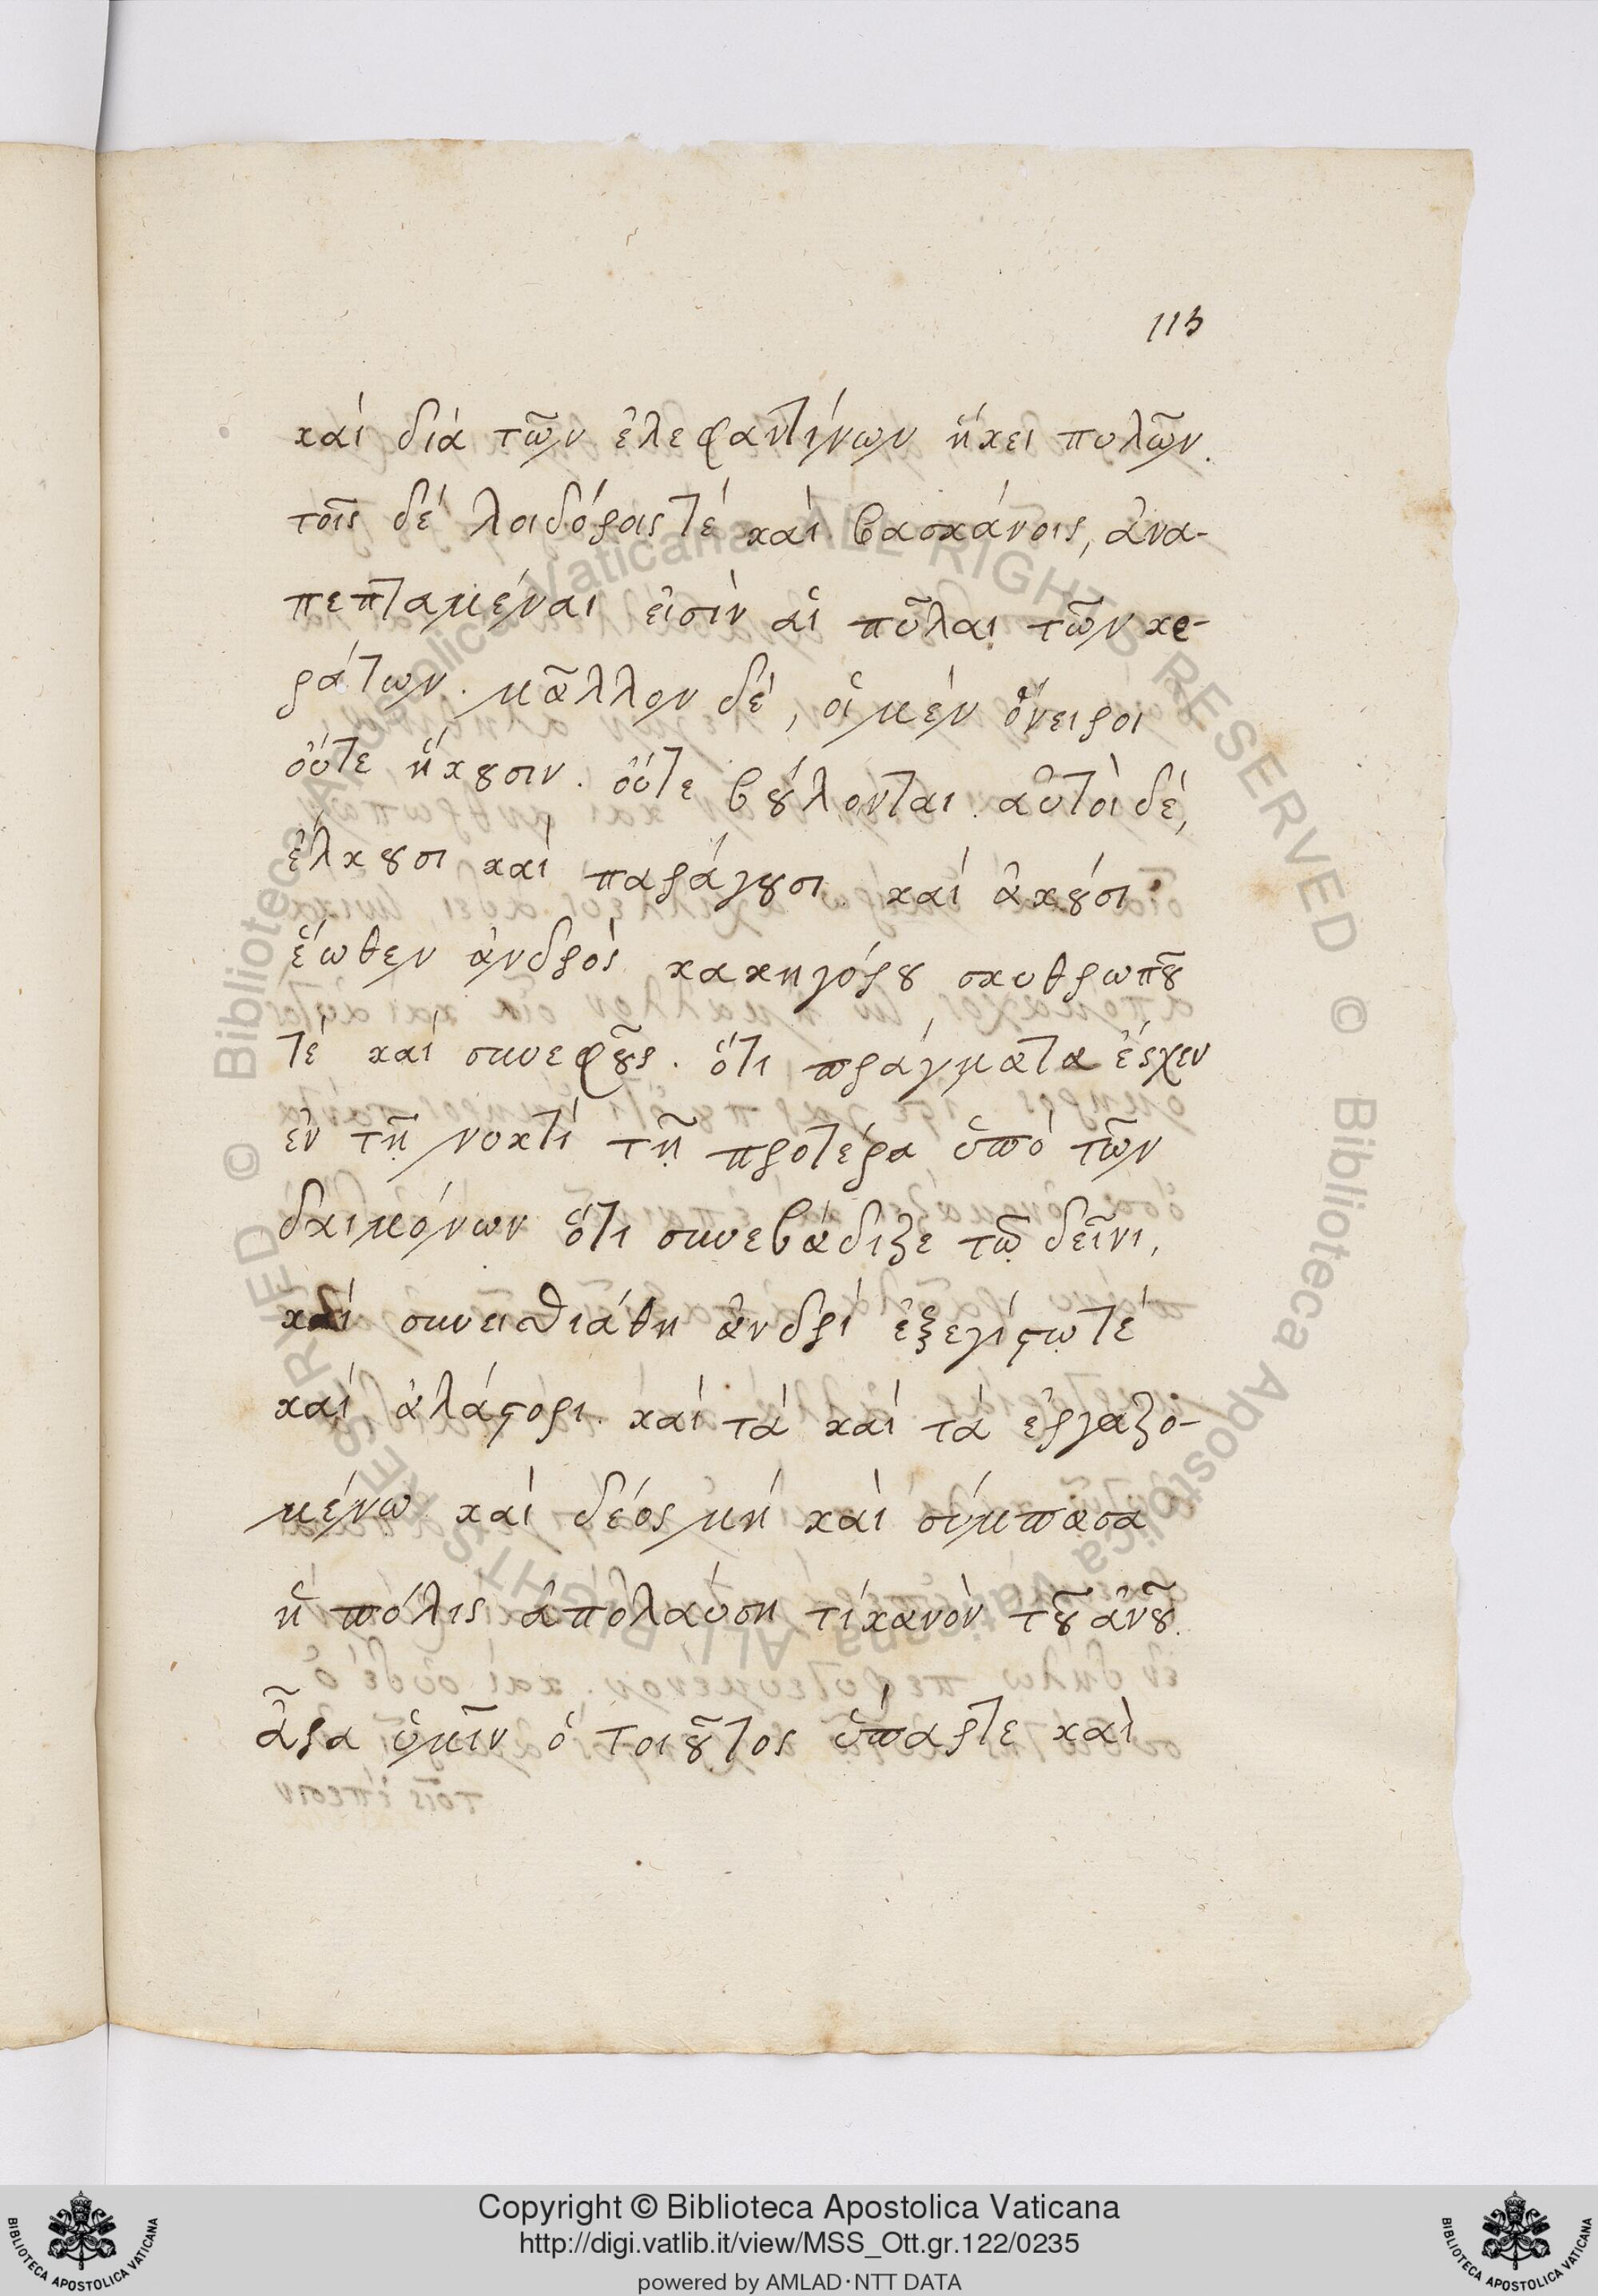 113
καὶ διὰ τῶν ἐλεφαντίνων ἥκει πυλῶν.
τοῖς δὲ λοιδόροις τὲ καὶ βασκάνοις, ἀνα-
πεπταμέναι εἰσὶν αἱ πῦλαι τῶν κε-
ράτων. μᾶλλον δέ, οἱ μὲν ὄνειροι
οὔτε ἥκουσιν. οὔτε βούλονται. αὐτοὶ δέ,
ἕλκουσι καὶ παράγουσι καὶ ἀκούσι
ἕωθεν ἀνδρὸς κακηγόρου σκυθρωποῦ
τὲ καὶ συνεφοῦς. ὅτι πράγματα ἔσχεν
ἐν τῇ νυκτὶ τῇ προτέρα ὑπὸ τῶν
δαιμόνων ὅτι συνεβάδιζε τῷ δεῖνι,
καὶ συνειστιάθη ἀνδρὶ ἐξεγίστω τὲ
καὶ ἀλάστορι. καὶ τὰ καὶ τὰ ἐργαζο-
μένω καὶ δέος μὴ καὶ σύμπασα
ἡ πόλις ἀπολαύση τίκανὸν τοῦ ἀνοῦ.
ἆρα ὑμῖν ὁ τοιοῦτος ὕπαρ τε καὶ
Copyright © Biblioteca Apostolica Vaticana
http://digi.vatlib.it/view/MSS_Ott.gr.122/0235
powered by AMLAD·NTT DATA